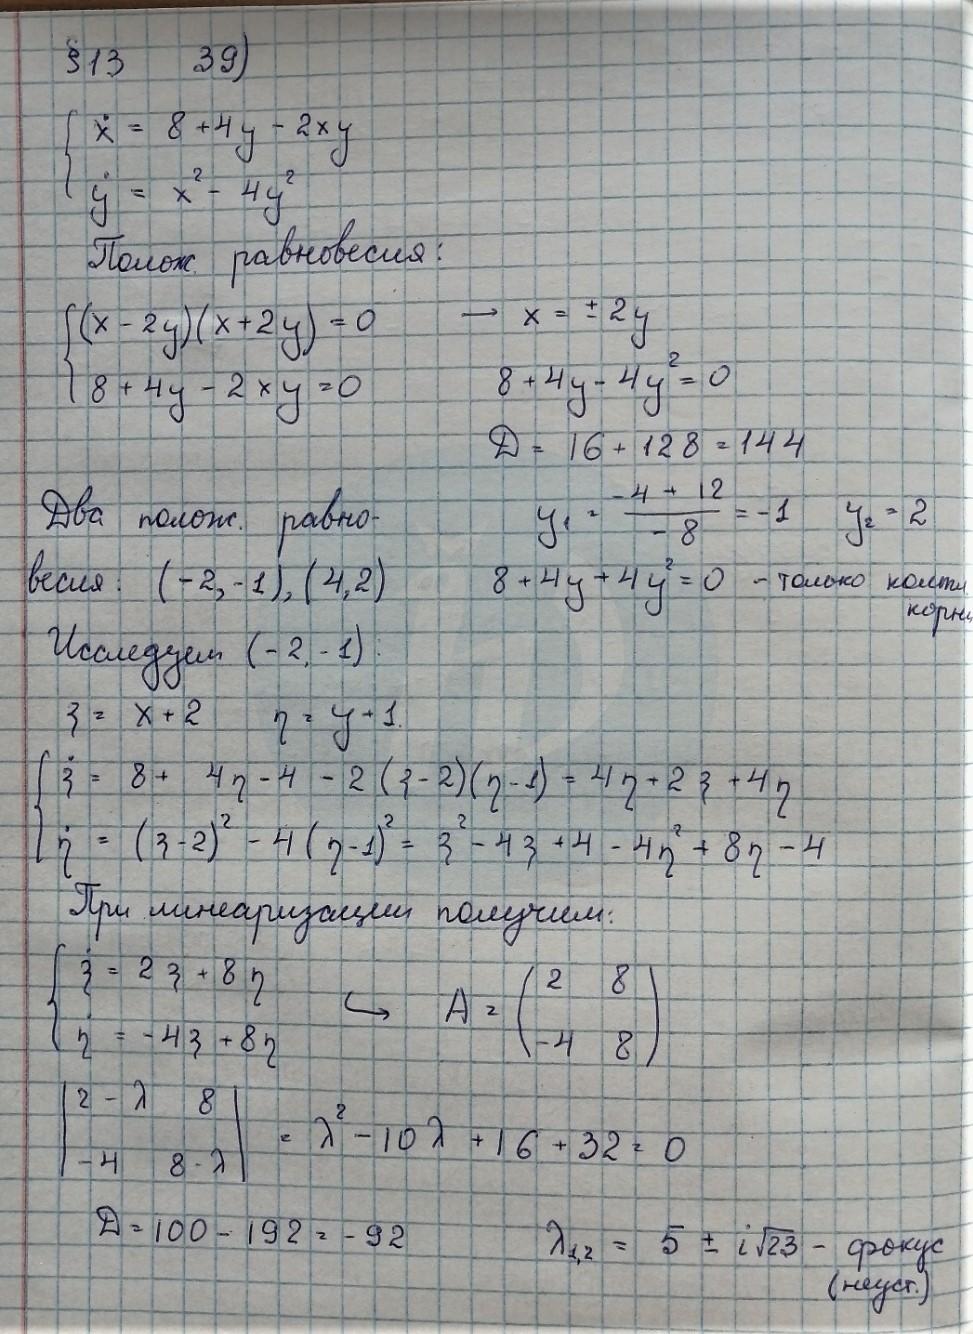 §13 39)
ẋ = 8 + 4y - 2xy
ẏ = x² - 4y²
Полож. равновесия:
(x - 2y)(x + 2y) = 0 → x = ± 2y
8 + 4y - 2xy = 0 8 + 4y - 4y² = 0
D = 16 + 128 = 144
Два полож. равно- y₁ = (-4 + 12)/(-8) = -1 y₂ = 2
весия: (-2, -1), (4, 2) 8 + 4y + 4y² = 0 - только компл.
корни
Исследуем (-2, -1):
ξ = x + 2 η = y + 1.
ξ̇ = 8 + 4η - 4 - 2(ξ - 2)(η - 1) = 4η + 2ξ + 4η
η̇ = (ξ - 2)² - 4(η - 1)² = ξ² - 4ξ + 4 - 4η² + 8η - 4
При линеаризации получим:
ξ̇ = 2ξ + 8η
η̇ = -4ξ + 8η ↪ A = (2 8; -4 8)
|2 - λ 8; -4 8 - λ| = λ² - 10λ + 16 + 32 = 0
D = 100 - 192 = -92 λ₁,₂ = 5 ± i√23 - фокус
(неуст.)